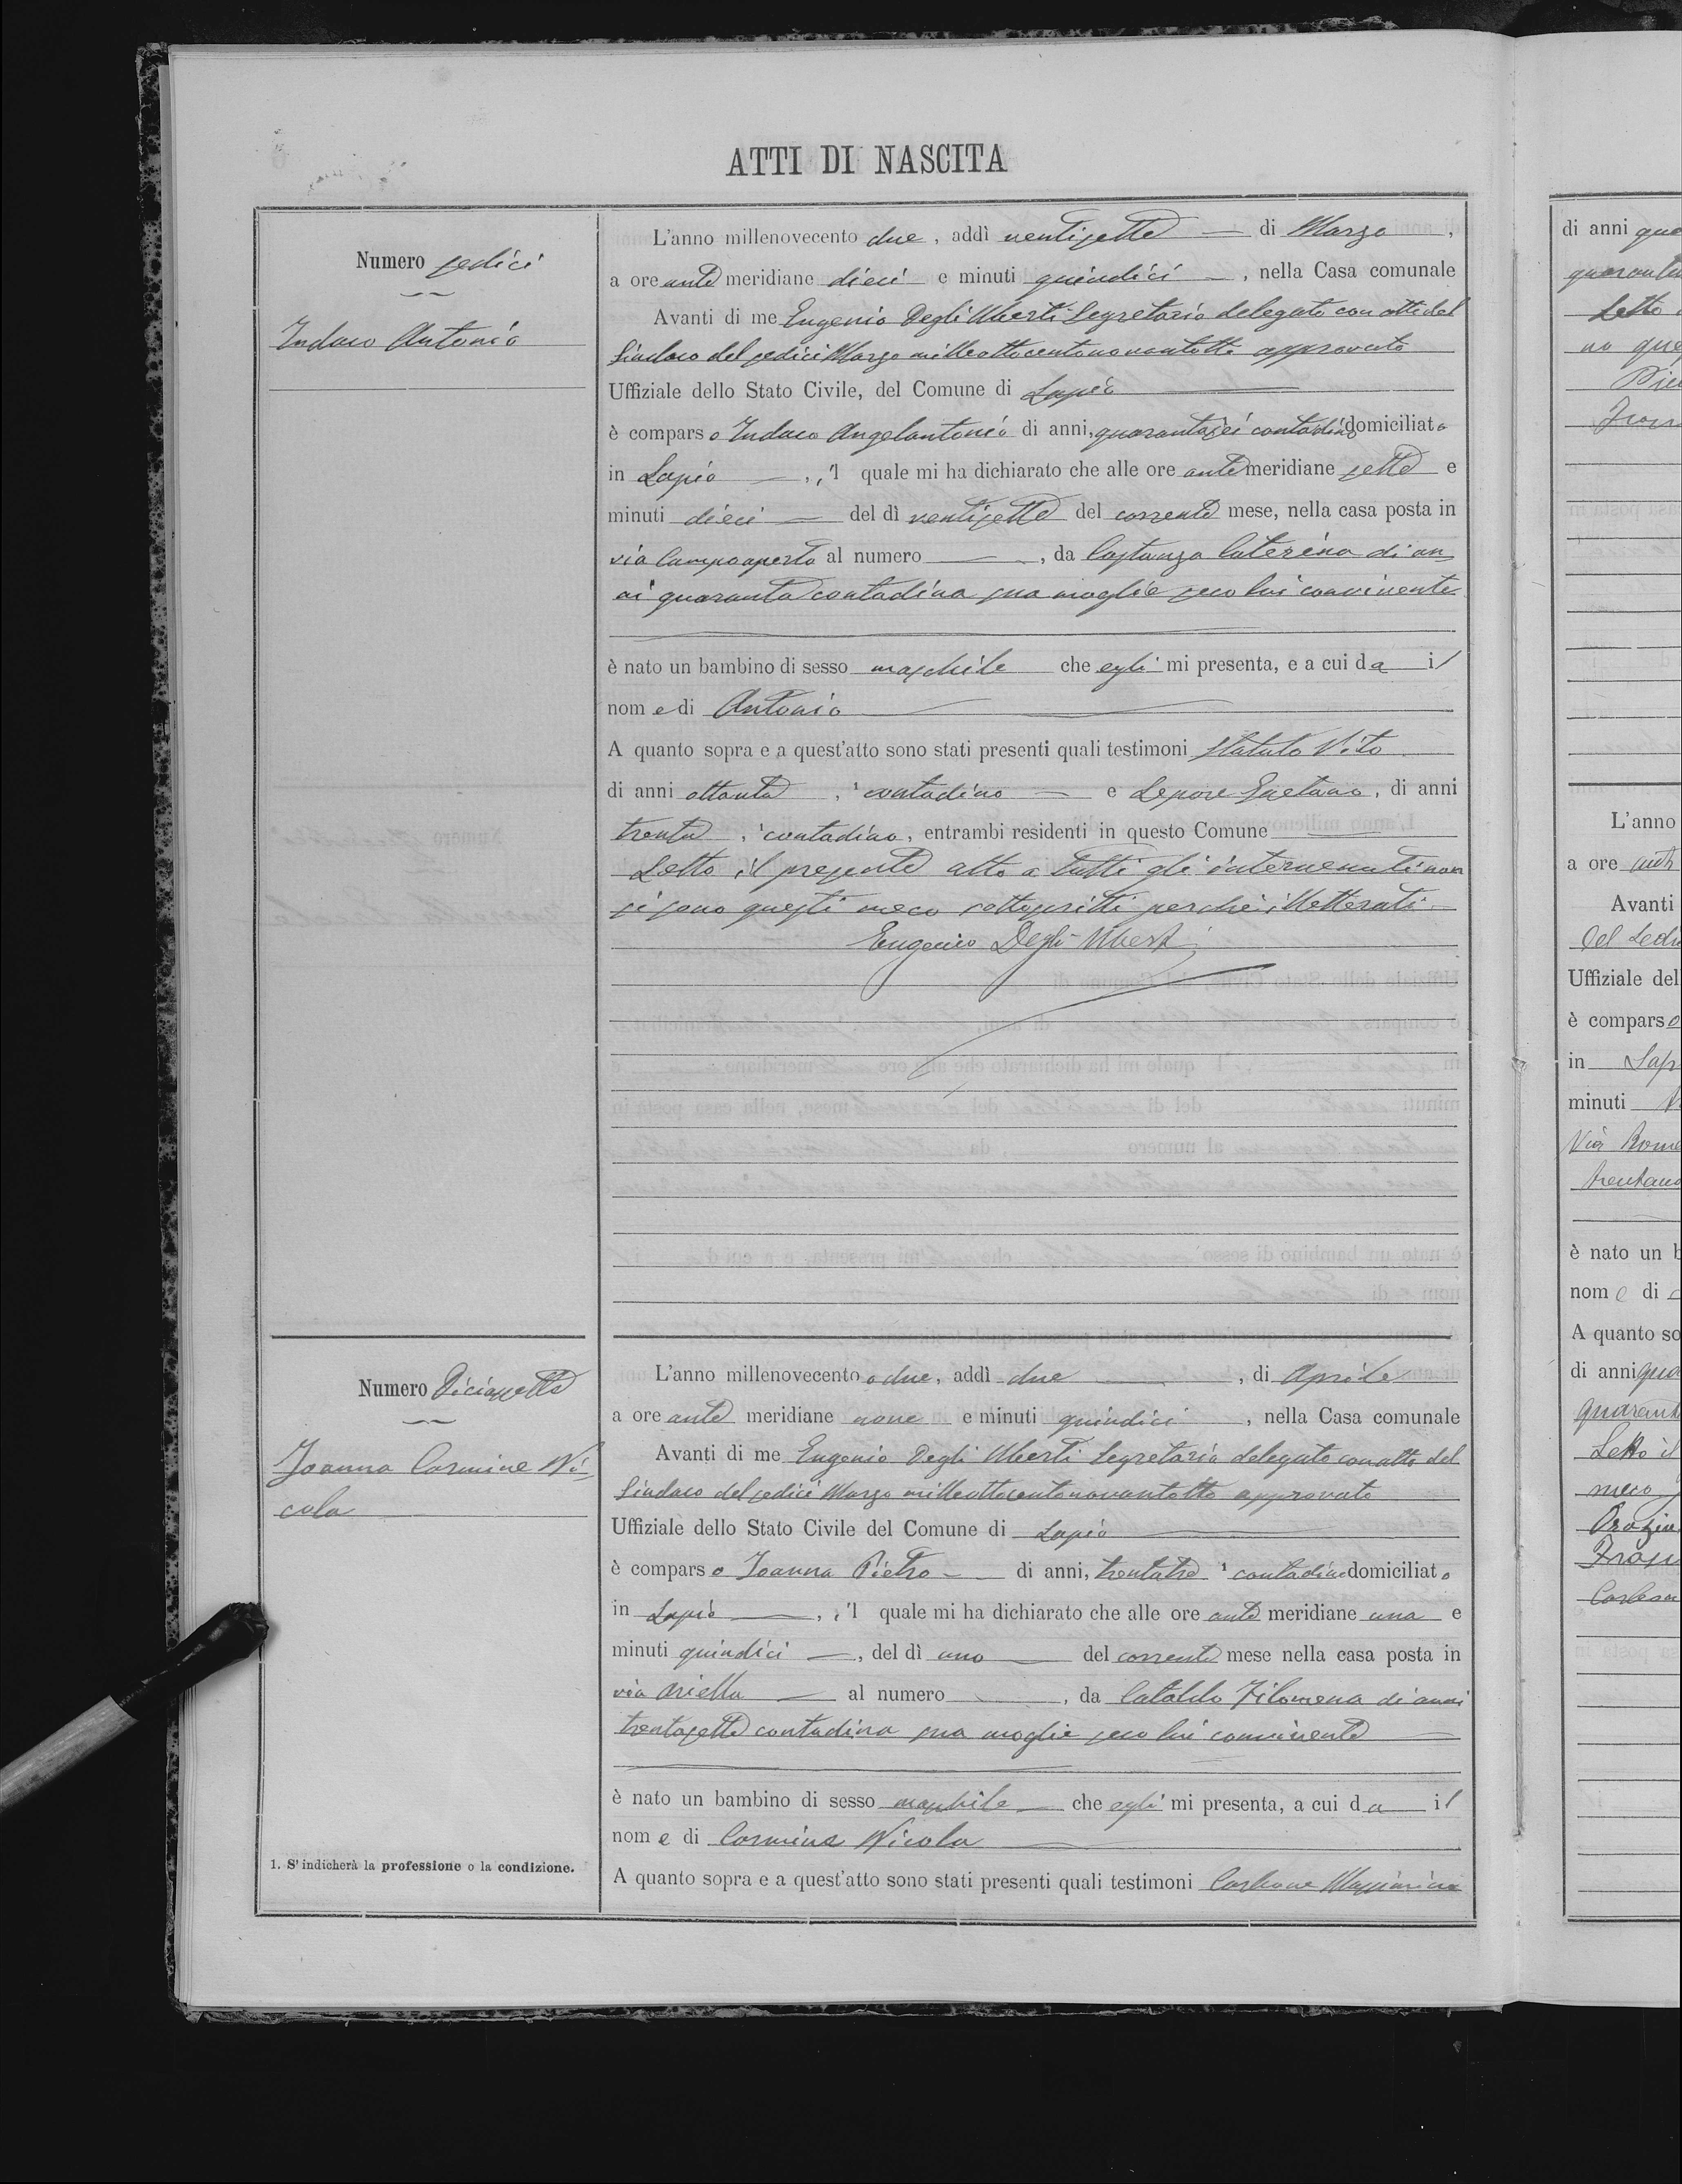 ATTI DI NASCITA
Numero sedici
Indaco Antonio
L'anno millenovecento due, addì ventisette — di Marzo,
a ore ante meridiane dieci e minuti quindici —, nella Casa comunale
Avanti di me Eugenio Degli Uberti Segretario delegato con atto del
Sindaco del sedici Marzo milleottocentonovantotto approvato
Uffiziale dello Stato Civile, del Comune di Lapio
è comparso Indaco Angelantonio di anni, quarantasei contadino domiciliato
in Lapio —, il quale mi ha dichiarato che alle ore ante meridiane sette e
minuti dieci — del dì ventisette del corrente mese, nella casa posta in
via Campoaperto al numero —, da Costanza Caterina di an
ni quaranta contadina sua moglie seco lui convivente
è nato un bambino di sesso maschile che egli mi presenta, e a cui da il
nome di Antonio
A quanto sopra e a quest'atto sono stati presenti quali testimoni Statuto Vito
di anni ottanta, contadino — e Lepore Gaetano, di anni
trenta, contadino, entrambi residenti in questo Comune
Letto il presente atto a tutti gli intervenuti non
si sono questi meco sottoscritti perchè illetterati
Eugenio Degli Uberti
Numero Diciassette
Joanna Carmine Ni
cola
L'anno millenovecento due, addì due —, di Aprile
a ore ante meridiane nove e minuti quindici —, nella Casa comunale
Avanti di me Eugenio Degli Uberti Segretario delegato con atto del
Sindaco del sedici Marzo milleottocentonovantotto approvato
Uffiziale dello Stato Civile del Comune di Lapio
è comparso Joanna Pietro — di anni, trentatre contadino domiciliato
in Lapio —, il quale mi ha dichiarato che alle ore ante meridiane una e
minuti quindici —, del dì uno — del corrente mese nella casa posta in
via Ariella — al numero —, da Cataldo Filomena di anni
trentasette contadina sua moglie seco lui convivente
è nato un bambino di sesso maschile — che egli mi presenta, a cui da il
nome di Carmine Nicola
A quanto sopra e a quest'atto sono stati presenti quali testimoni Carbone
1. S'indicherà la professione o la condizione.
di anni
Letto
L'anno
a ore
Avanti
Uffiziale del
è comparso
in Lap
minuti
Via Roma
è nato un b
nome di
A quanto so
di anni
Letto il
meco